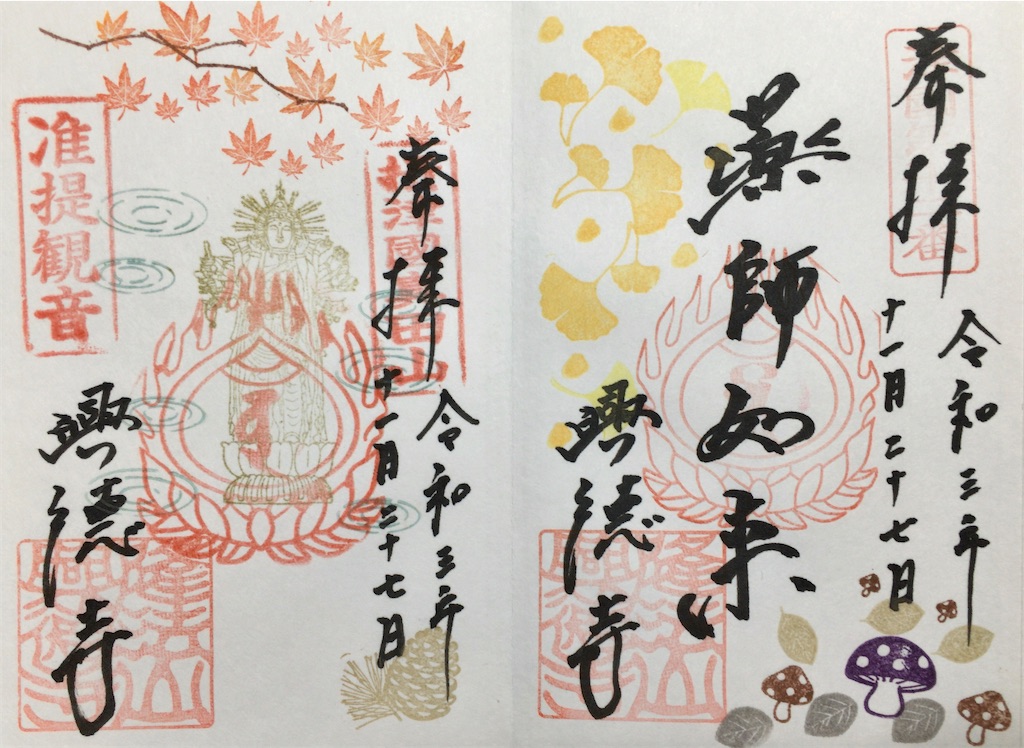 奉拝
令和三年
十一月二十七日
薬師如来
興徳寺
奉拝
令和三年
十一月二十七日
准提観音
興徳寺